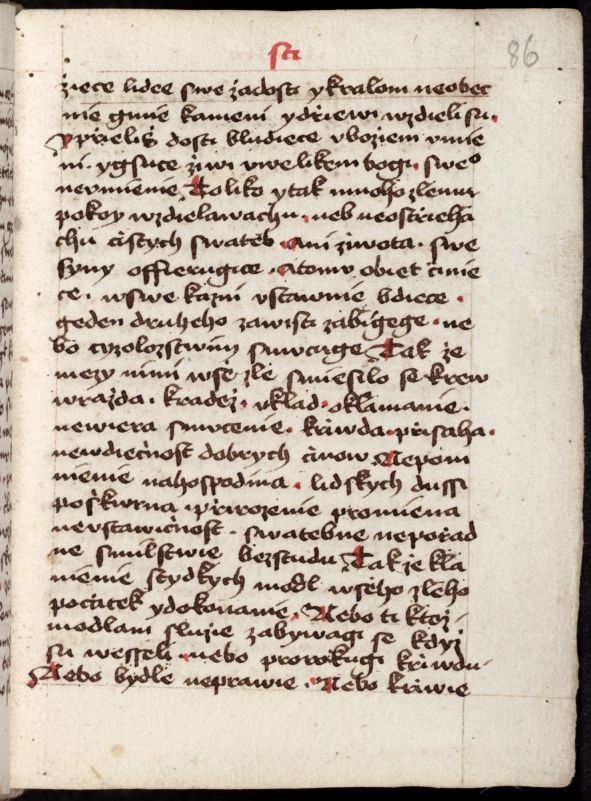 sti
86
ziece lidee swe zadosti ykralom neobec
nie gmie kameni ydrziewi wzdieli su.
yprzielis dosti bludiece vboziem vmie
ni. ygsuce ziwi vwelikem bogi sweo
nevmienie Toliko ytak mnoho zlemu
pokoy wzdielawachu. neb neostrzieha
chu cistych swateb. ani ziwota. swe
syny offierugice. Atomu obiet cinie
ce. wswe kazni vstawnie bdiece.
geden druheho zawisti zabigege. ne
bo cyzolozstwim smucuge Tak ze
mezy nimi wsie zle smiesilo se krew
wrazda. kradez. vklad. oklamanie.
newiera smucenie. krziwda. prisaha.
newdiecnost dobrych cinow. Nepom
nienie nahospodina. lidskych dussi
poskwrna. przirozenie promiena
nevstawicnost. swatebne neporzad
ne smilstwie bezstudu Tak ze kla
nienie stydkych modl wseho zleho
pocatek ydokonanie. Nebo ti ktoz
modlam sluzie zabywagi se kdyz
su wesseli. nebo prorokugi krziwdu.
Nebo bydle neprawie. Nebo krziwie